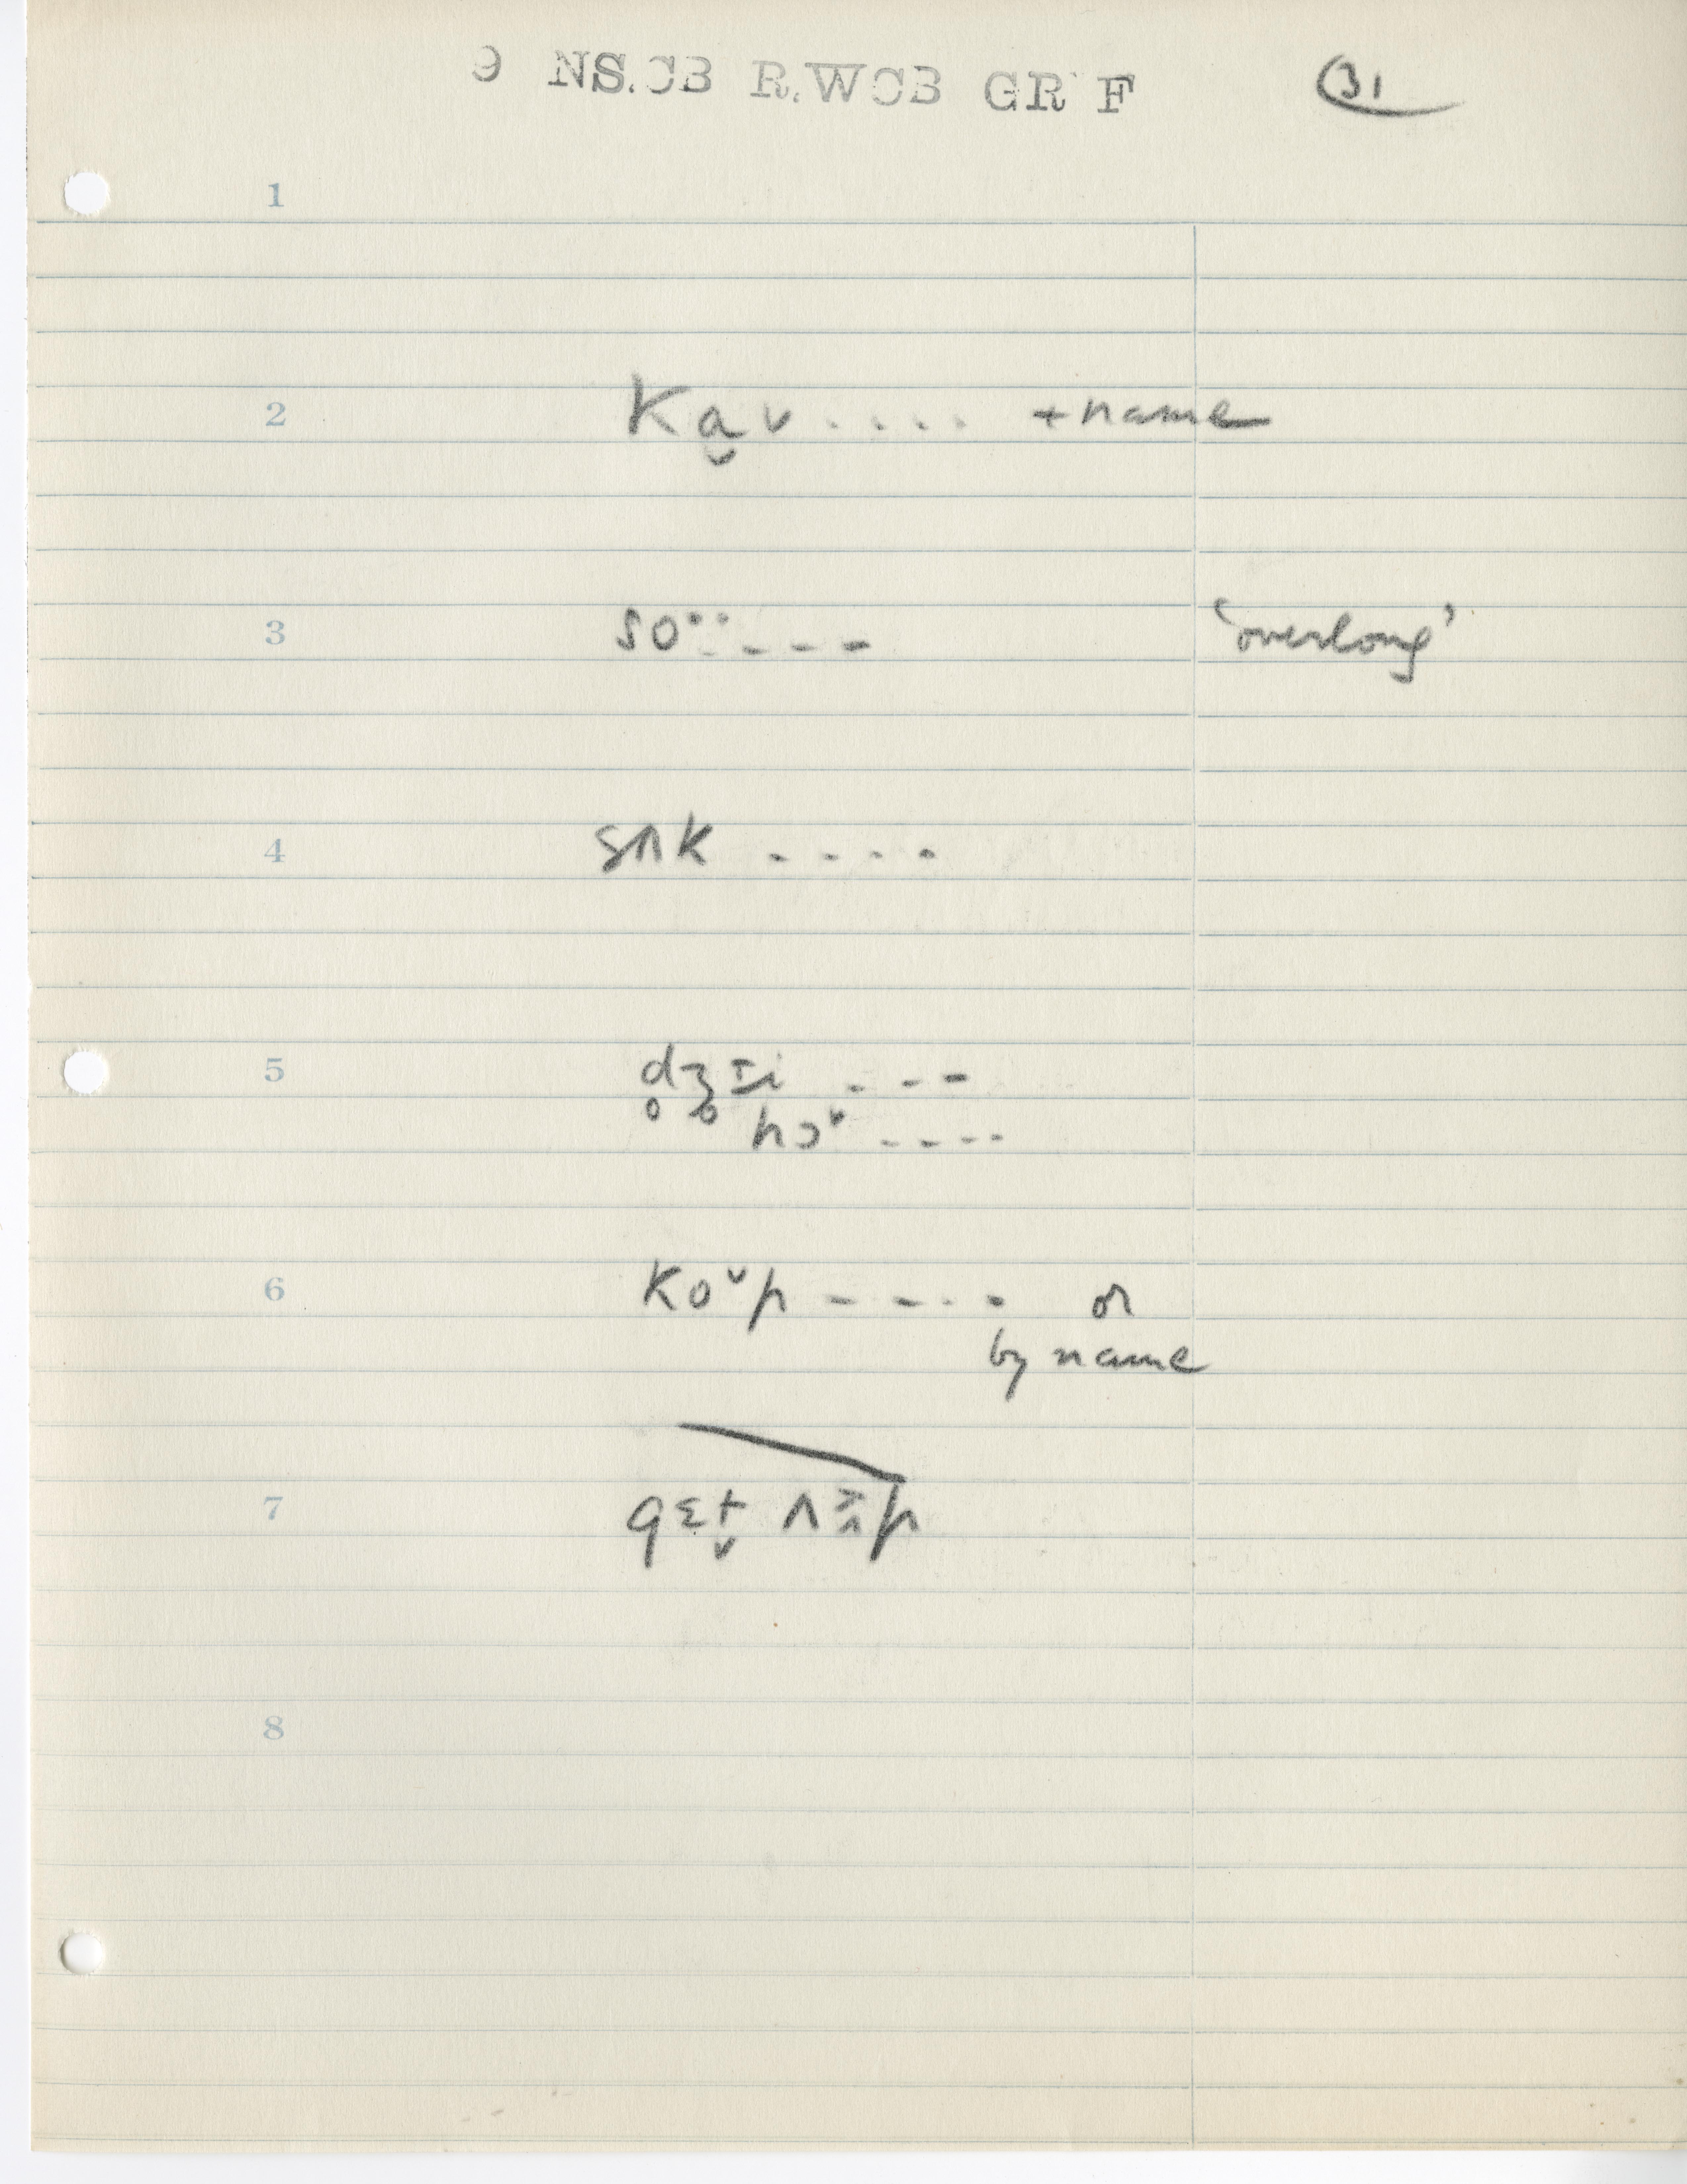 9 NS.CB R.WCB GR F 31
1
2 Ka̬ v .... + name
3 so˙˙ .... 'overlong'
4 sʌk ....
5 d̥ʒ̥ ɪi ...
hɔᵛ ....
6 Koᵛp .... or
by name
7 gɛt̬ ʌ p
8